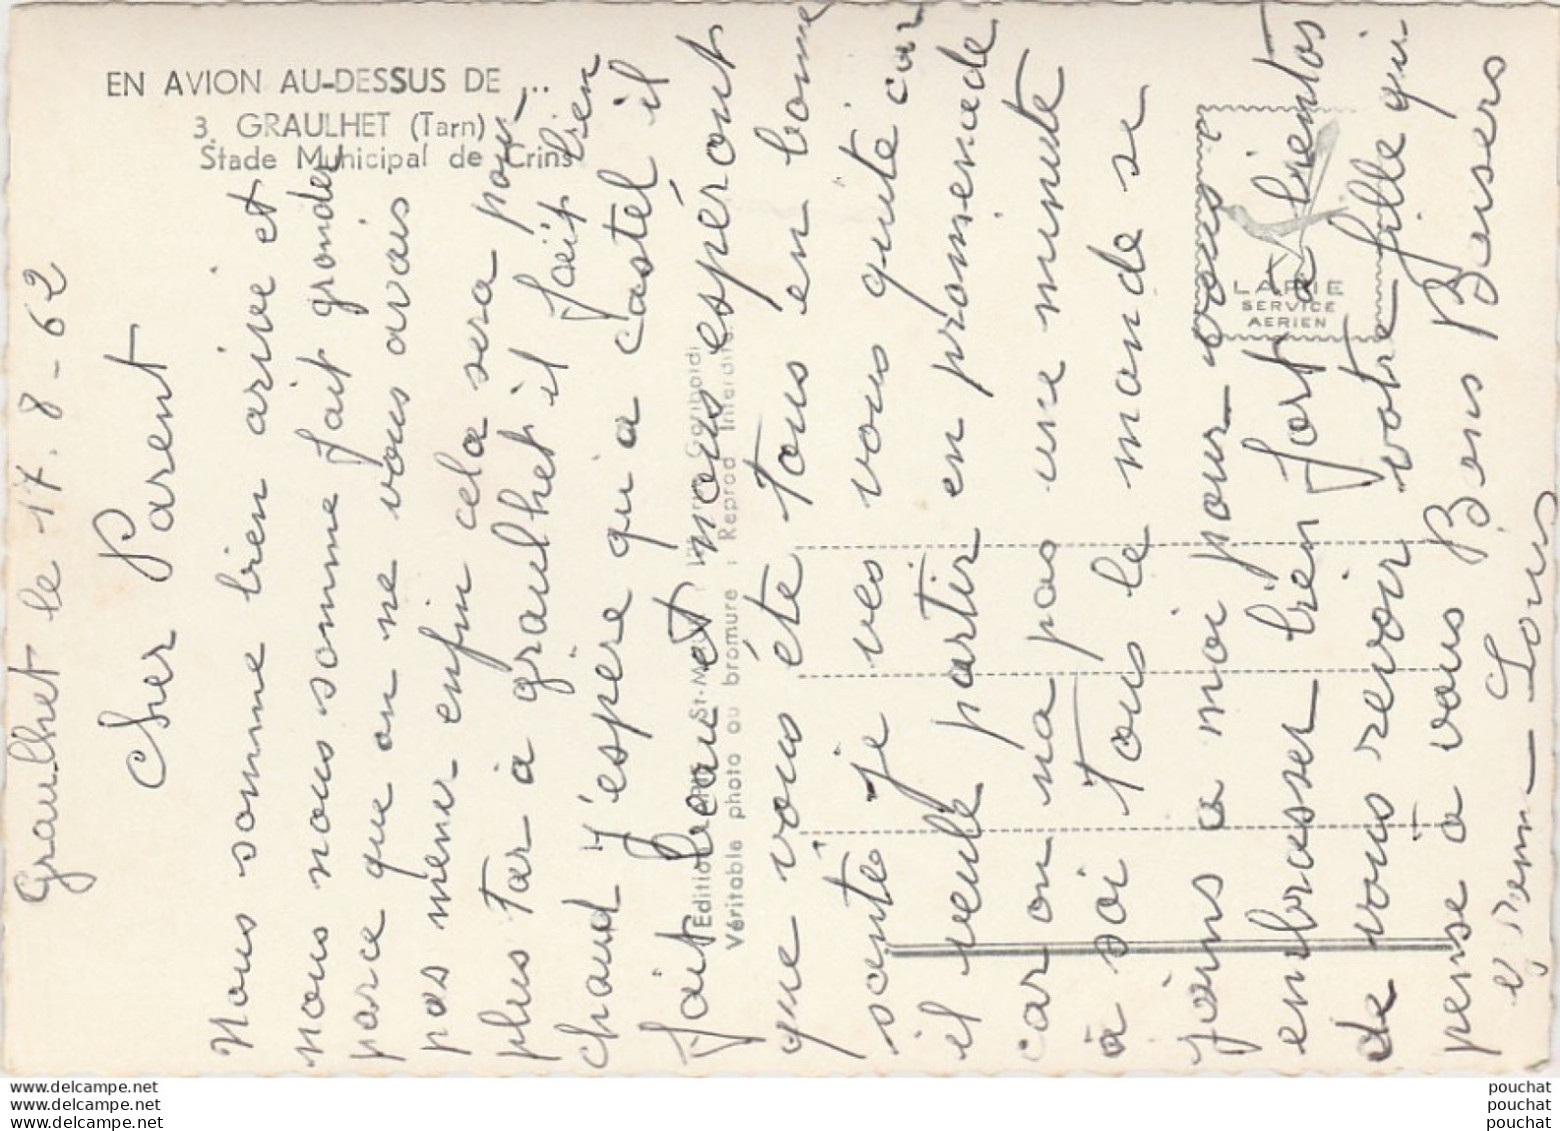 EN AVION AU-DESSUS DE ...
3. GRAULHET (Tarn)
Stade Municipal de Crins
LAPIE
SERVICE
AERIEN
Véritable photo au bromure : Reprod Interdite.
Graulhet le 17-8-62
Cher Parent
Nous somme bien arive et
nous nous somme fait gronder
parce que on ne vous avais
pas mener enfin cela sera pour
plus tar à graulhet il fait bien
chaud j'espère qu'a castel il
fait beau et nous espéront
que vous éte tous en bonne
santé je ves vous quité car
il veule partir en promenade
car on na pas une minute
à soi tous le monde se
joins a moi pour vous
enbrasser bien fort a bientos
de vous revoir votre fille qui
pense a vous Bons Baisers
Louis
www.delcampe.net
www.delcampe.net
www.delcampe.net
pouchat
pouchat
pouchat